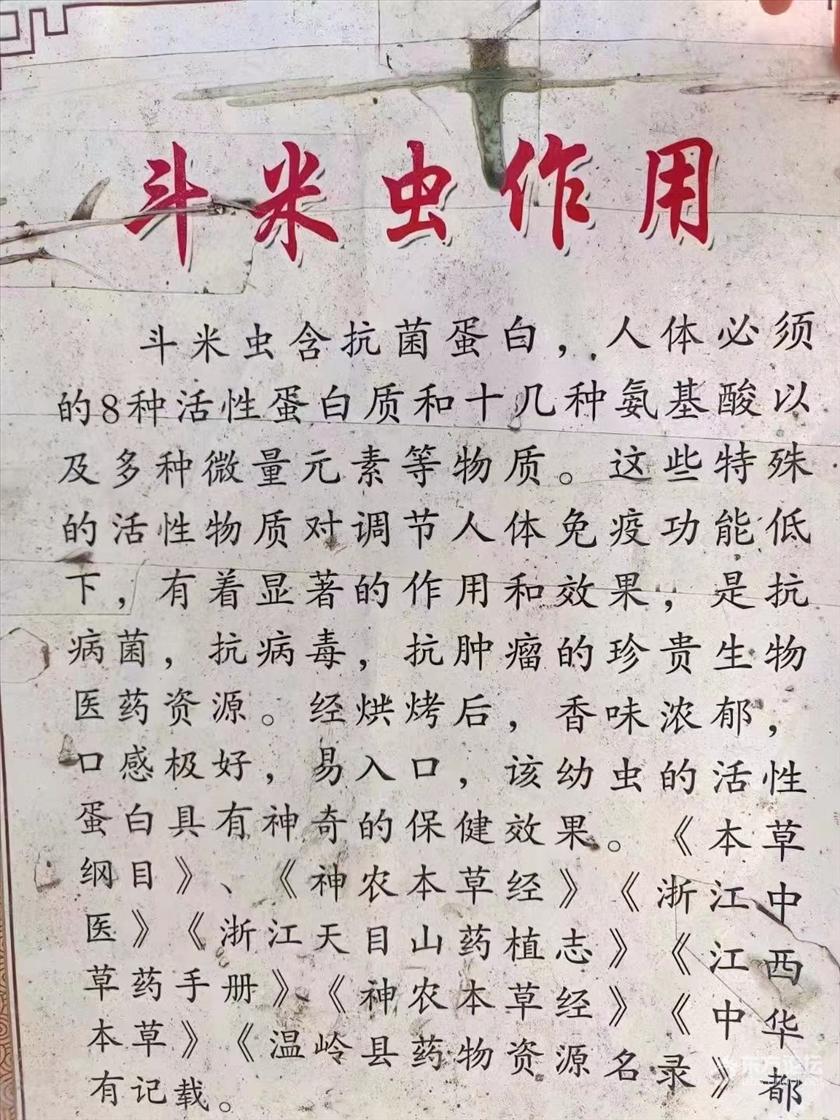 斗米虫作用
斗米虫含抗菌蛋白，人体必须
的8种活性蛋白质和十几种氨基酸以
及多种微量元素等物质。这些特殊
的活性物质对调节人体免疫功能低
下，有着显著的作用和效果，是抗
病菌，抗病毒，抗肿瘤的珍贵生物
医药资源。经烘烤后，香味浓郁，
口感极好，易入口，该幼虫的活性
蛋白具有神奇的保健效果。《本草
纲目》、《神农本草经》《浙江中
医》《浙江天目山药植志》《江西
草药手册》《神农本草经》《中华
本草》《温岭县药物资源名录》都
有记载。
东方论坛